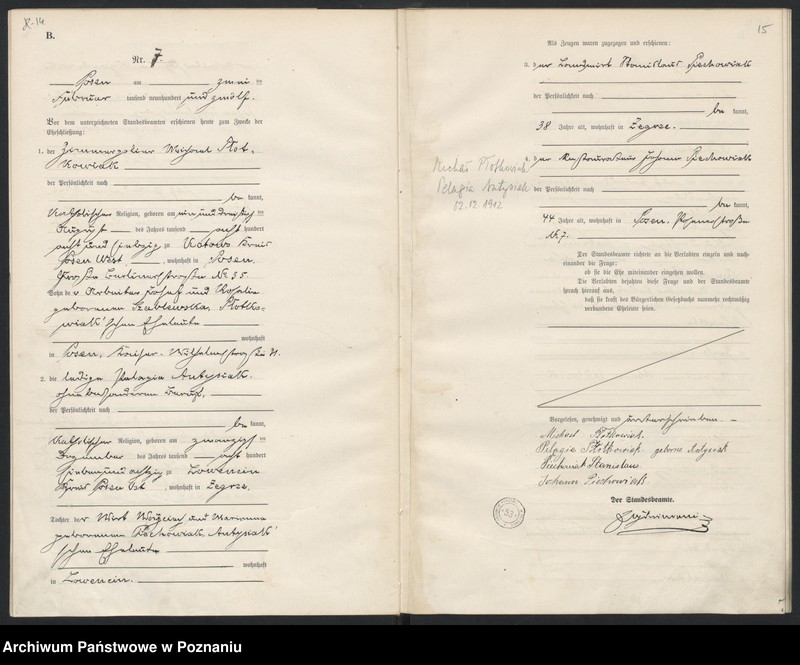 B.
Nr. 7.
Posen am zwei ten
Februar tausend neunhundert und zwölf.
Vor dem unterzeichneten Standesbeamten erschienen heute zum Zwecke der
Eheschließung:
1. der Zimmerpolier Michael Plot-
kowiak
der Persönlichkeit nach
be kannt,
katholischer Religion, geboren am einunddreißig sten
August des Jahres tausend acht hundert
achtundsiebzig zu Kreis
Posen West, wohnhaft in Posen,
Große Berlinerstraße Nr. 35.
Sohn des Arbeiters Josef und Rosalie
geborenen Plotko-
wiak'schen Eheleute
wohnhaft
in Posen, Kaiser-Wilhelmstraße
2. die ledige Pelagia Antysiak,
ohne besonderen Beruf,
der Persönlichkeit nach
be kannt,
katholischer Religion, geboren am zwanzig sten
Dezember des Jahres tausend acht hundert
siebenundachtzig zu Lowencin
Kreis Posen Ost, wohnhaft in Zegrze.
Tochter der Wirt und Marianna
geborenen Antysiak'
schen Eheleute
wohnhaft
in Lowencin.
15
Als Zeugen waren zugezogen und erschienen:
3. der Landwirt Stanislaus Piechowiak
der Persönlichkeit nach
be kannt,
38 Jahre alt, wohnhaft in Zegrze.
4. der Johann Piechowiak
der Persönlichkeit nach
be kannt,
44 Jahre alt, wohnhaft in Posen,
Nr. 7.
Michał Plotkowiak
Pelagia Antysiak
12.12.1912
Der Standesbeamte richtete an die Verlobten einzeln und nach-
einander die Frage:
ob sie die Ehe miteinander eingehen wollen.
Die Verlobten bejahten diese Frage und der Standesbeamte
sprach hierauf aus,
daß sie kraft des Bürgerlichen Gesetzbuchs nunmehr rechtmäßig
verbundene Eheleute seien.
Vorgelesen, genehmigt und unterschrieben
Michael Plotkowiak.
Pelagia Plotkowiak geborne Antysiak
Piechowiak Stanislaus
Johann Piechowiak
Der Standesbeamte.
Archiwum Państwowe w Poznaniu